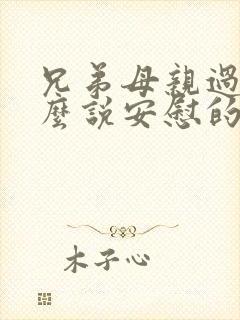 兄弟母親過
麼說安慰的
木子心